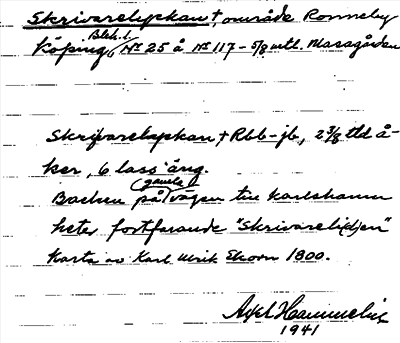 Skrivarelyckan †, område Ronneby
Blek. l.
Köping, No 25 å No 117 - 5/8 utl. Masagården
Skrivarelyckan † Rbb-jb, 2 3/8 tld å-
ker, 6 lass äng.
Backen på gamla vägen till Karlshamn
heter fortfarande "Skrivareli(d)en"
Karta av Karl Ulrik Ekorn 1800.
Axel Hammelin
1941